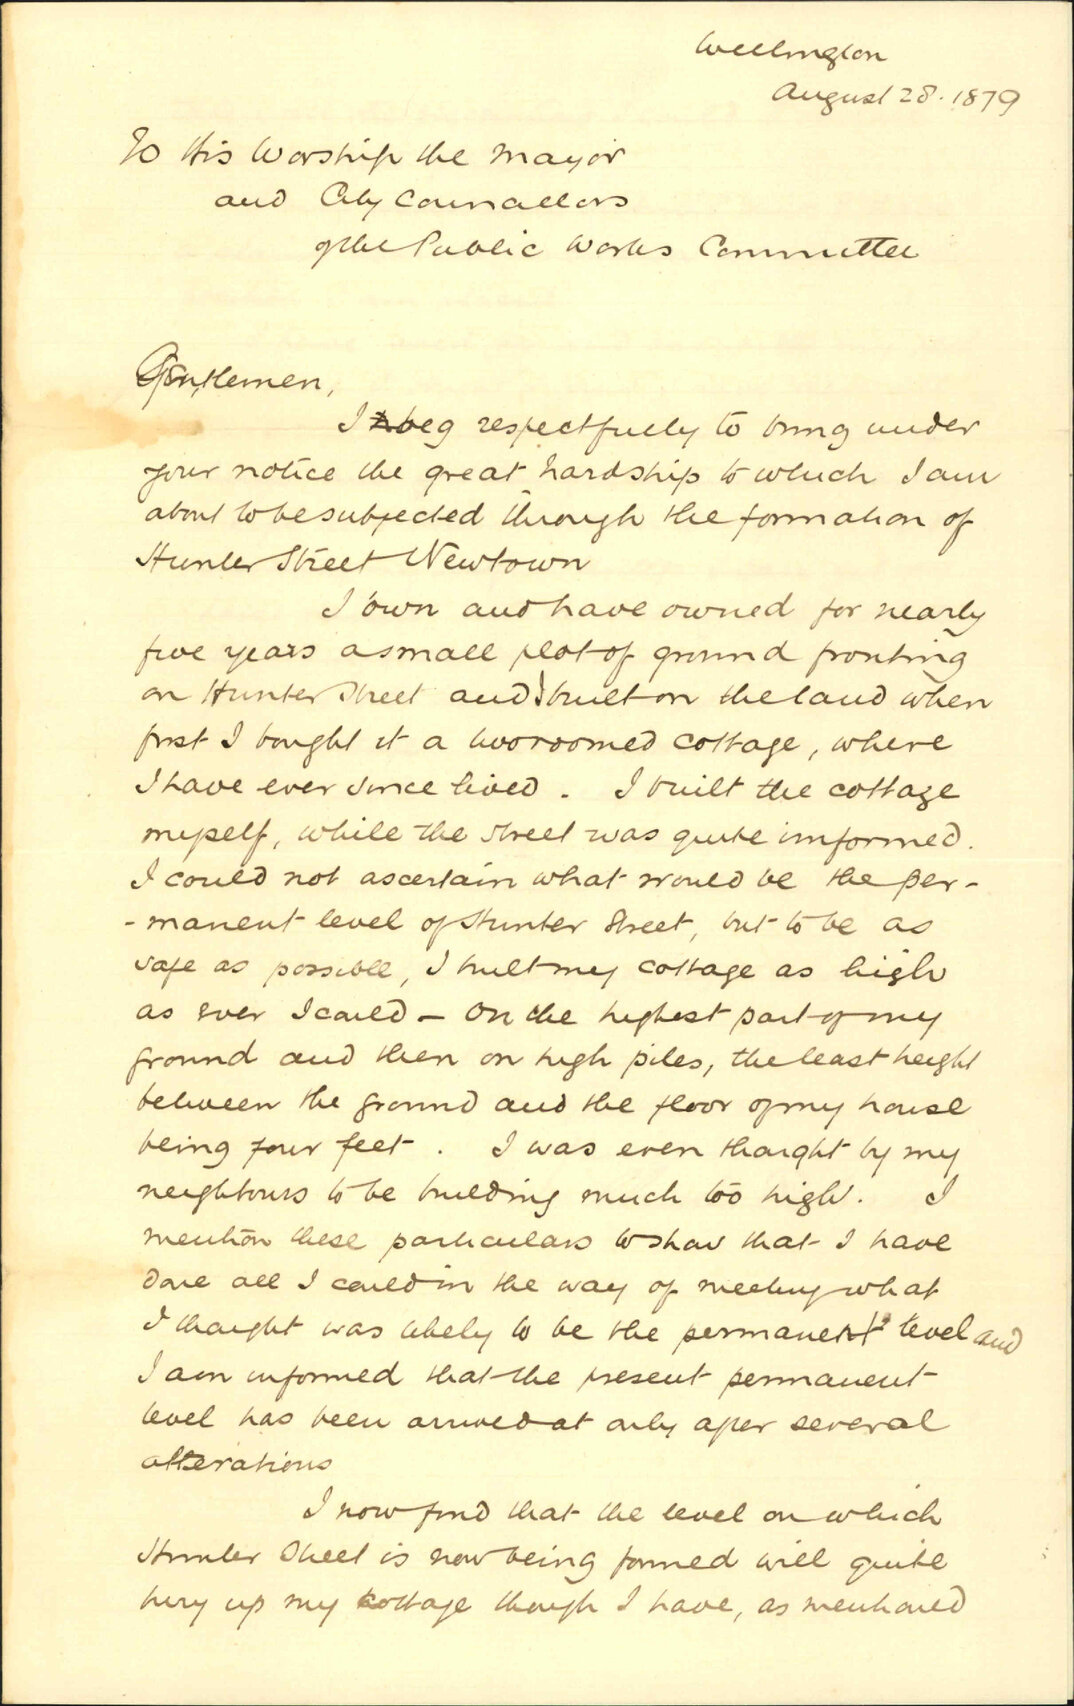 Wellington
August 28. 1879
To His Worship the Mayor
and City Councillors
of the Public Works Committee
Gentlemen,
I beg respectfully to bring under
your notice the great hardship to which I am
about to be subjected through the formation of
Hunter Street Newtown
I own and have owned for nearly
five years a small plot of ground fronting
on Hunter Street and I built on the land when
first I bought it a two roomed cottage, where
I have ever since lived. I built the cottage
myself, while the street was quite unformed.
I could not ascertain what would be the per-
-manent level of Hunter Street, but to be as
safe as possible, I built my cottage as high
as ever I could – On the highest part of my
ground and then on high piles, the least height
between the ground and the floor of my house
being four feet. I was even thought by my
neighbours to be building much too high. I
mention these particulars to show that I have
done all I could in the way of meeting what
I thought was likely to be the permanent level and
I am informed that the present permanent
level has been arrived at only after several
alterations
I now find that the level on which
Hunter Street is now being formed will quite
bury up my cottage though I have, as mentioned